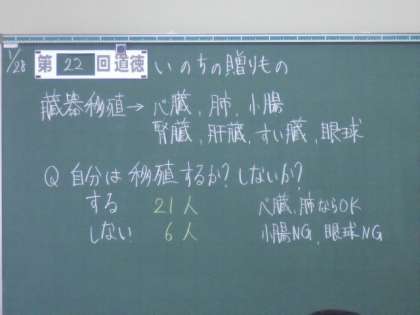 1/28 第22回道徳 いのちの贈りもの
臓器移植→心臓,肺,小腸
腎臓,肝臓,すい臓,眼球
Q 自分は移植するか?しないか?
する 21人 心臓,肺ならOK
しない 6人 小腸NG,眼球NG